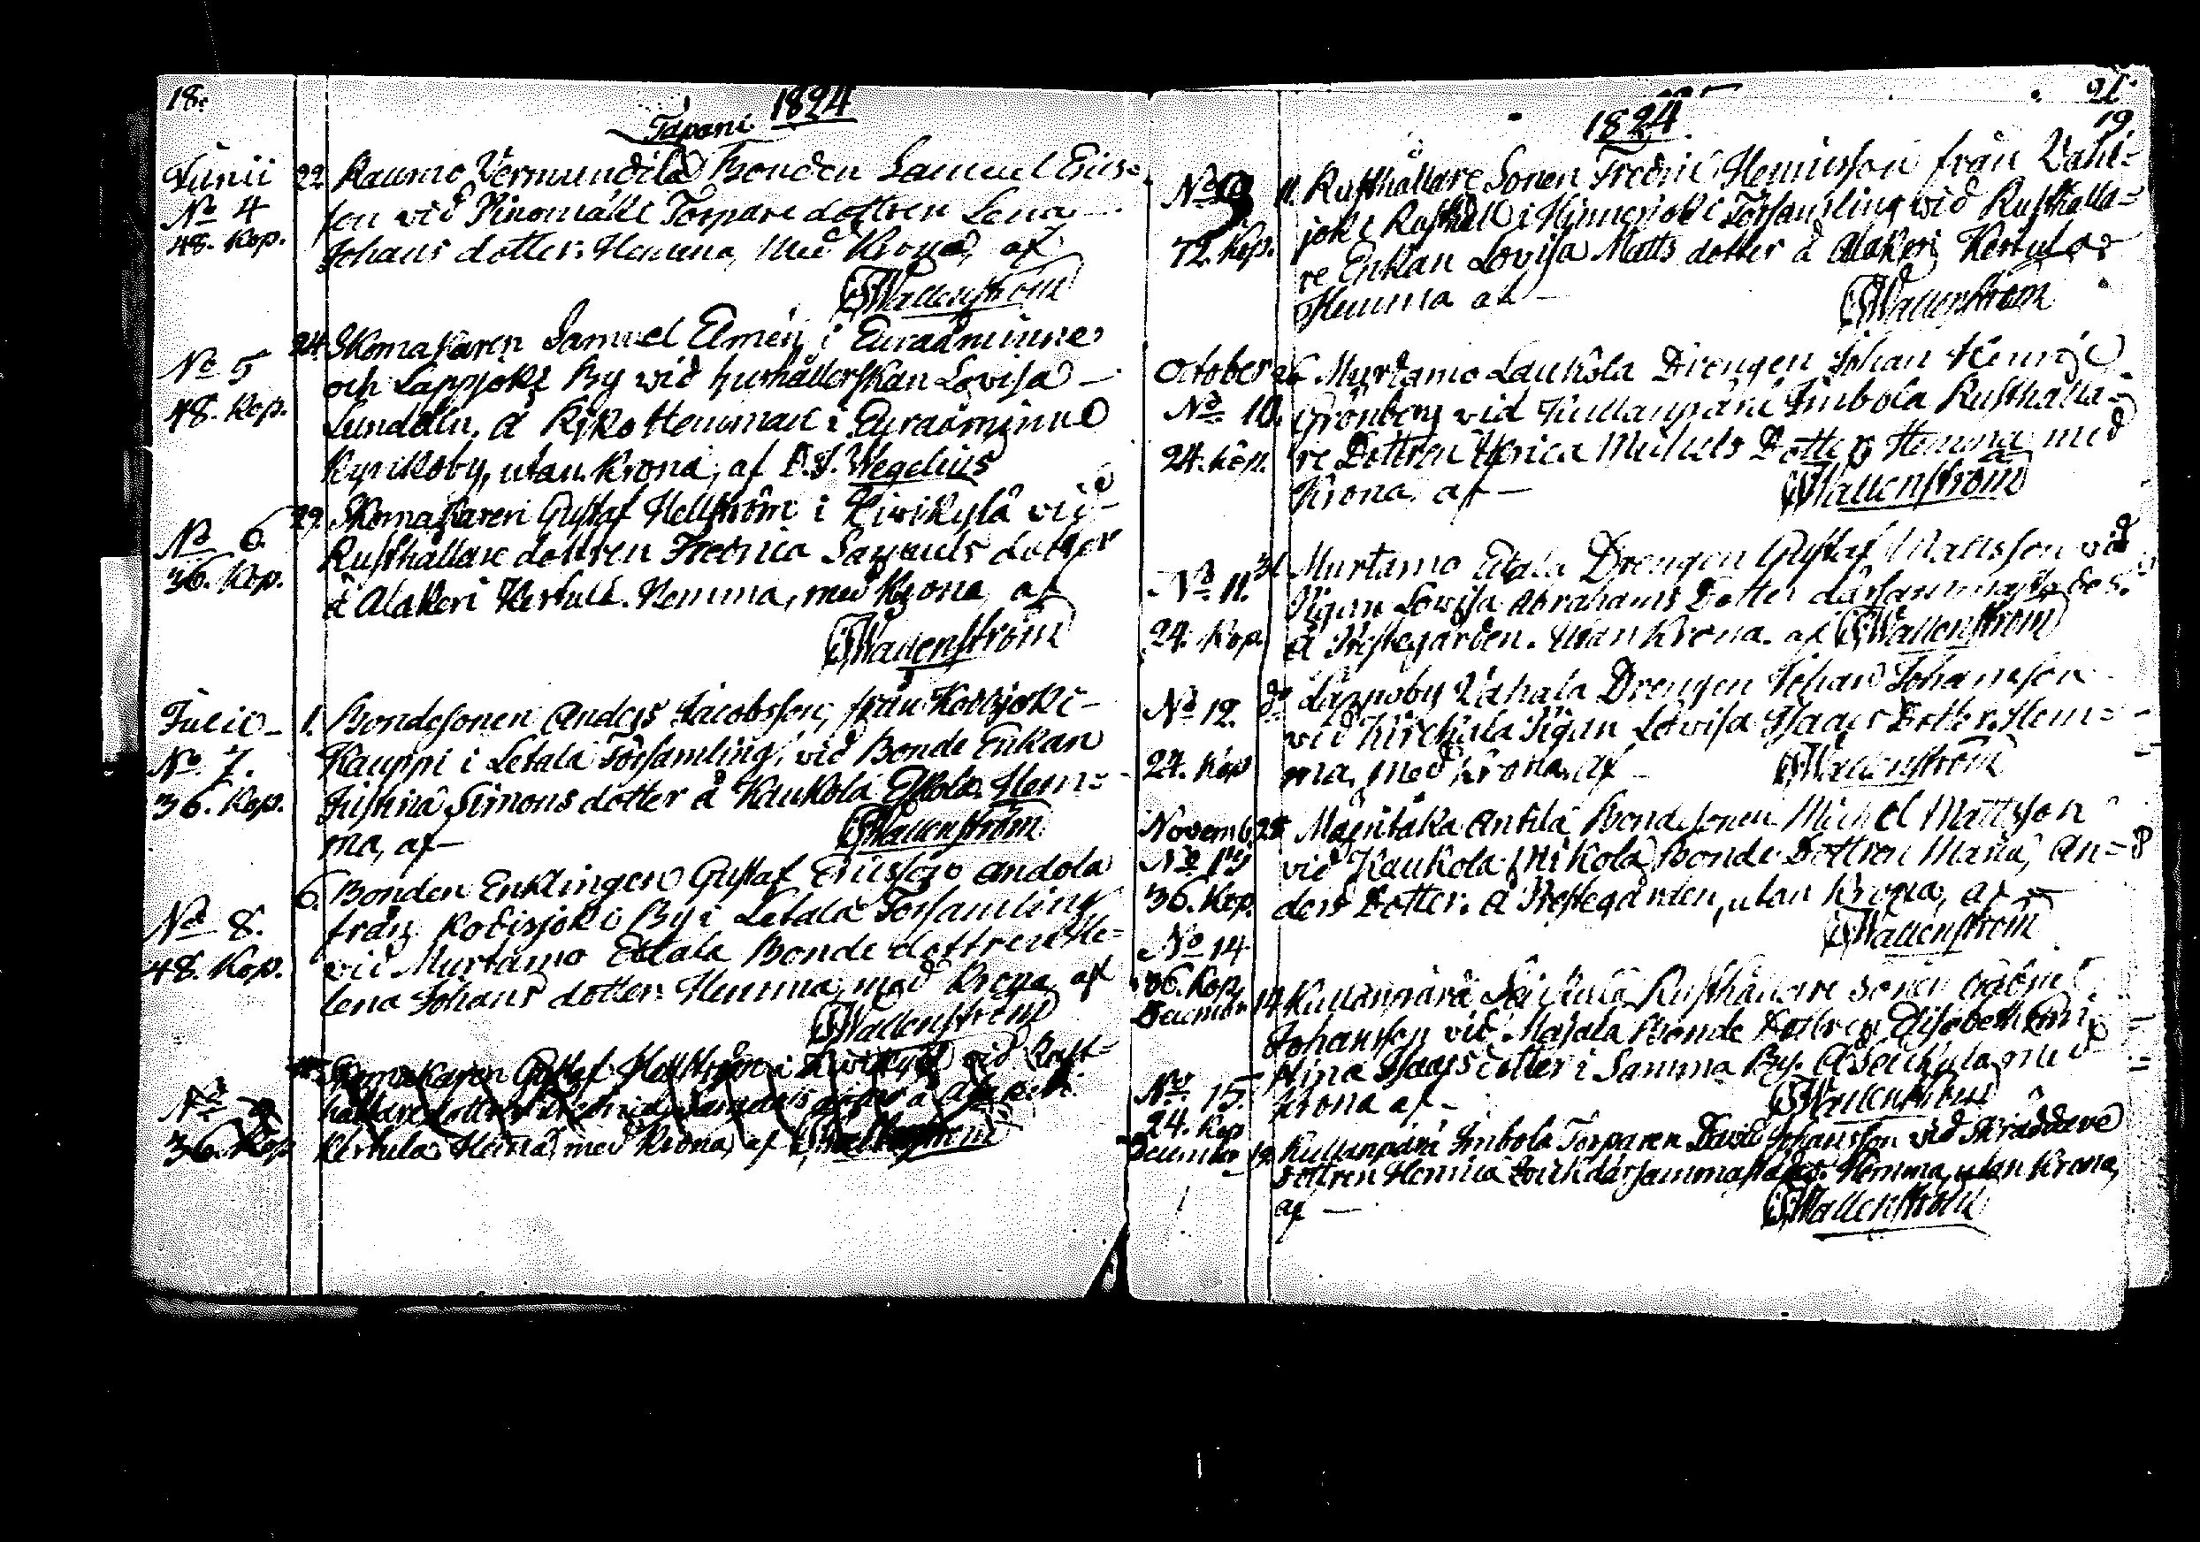 18.
1824
Tapani
Junii 22. Raumo Vermundila Bonden Samuel Erics-
No 4 son vid Pinomäki Torpare dottren Lena
48. Kop. Johans dotter. Hemma, med Krona, af
CJWallenström
24. Skomakaren Samuel Elmén, i Euraåminne
No 5 och Lappjoki By vid hushållerskan Lovisa
48. Kop. Lundelin, å Kiko Hemman i Euraåminne
Kyrckoby, utan Krona, af Wegelius
29. Skomakaren Gustaf Hellström i Kiwikylä vid
No 6 Rusthållare dottren Fredrica Samuels dotter
36. Kop. å Alakeri Kertula. Hemma, med Krona, af
CJWallenström
Julii 1. Bondesonen Anders Jacobsson, från Kodisjoki
No 7. Kauppi i Letala Församling, vid Bonde Enkan
36. Kop. Justina Simons dotter å Kaukola Eskola. Hem-
ma, af
CJWallenström
6. Bonden Enklingen Gustaf Ericsson Andola
No 8. från Kodisjoki By i Letala Församling
48. Kop. vid Murtamo Ettala Bonde dottren He-
lena Johans dotter. Hemma, med Krona, af
CJWallenström
Skomakaren Gustaf Hellström i Kiwikylä vid Rust-
No 9 hållare dottren Fredrica Samuels å Alakeri
36. Kop Kertula. Hemma, med Krona, af CJWallenström
21.
19
1824.
No 9 11. Rusthållare Sonen Fredric Henricsson från Vahi-
joki Rusthåll i Hinnerjoki Församling vid Rusthålla-
72. Kop. re Enkan Lovisa Matts dotter å Alakeri Kertula
Hemma af
CJWallenström
October 26 Murtamo Laukola Drengen Johan Henric
No 10. Grönberg vid Kullanpäru Imbola Rusthålla-
24. Kop. re Dottren Ulrica Michels Dotter Hemma med
Krona, af
CJWallenström
31 Murtamo Etala Drengen Gustaf Mattsson vid
No 11. Pigan Lovisa Abrahams Dotter därsammastädes.
24. Kop. å Prestegården. Utan Krona. af CJWallenström
No 12. do Lagnoby Vahala Drengen Johan Johansson
vid Kirckula Pigan Lovisa Isaacs Dotter. Hem-
24. Kop ma, med Krona, af
CJWallenström
Novemb. 25 Mäentaka Antila Bondesonen Michel Mattsson
No 13 vid Kaukola Mikola Bonde Dottren Maria, An-
36. Kop. ders Dotter. å Prestegården, utan Krona, af
CJWallenström
No 14
36. Kop
December 14 Kullanpärä Seickula Rusthållare Sonen Gabriel
Johansson vid Majala Bonde Dottren Elisabeth Er-
No 15. nina Isaacs dotter i Samma By. å Seickula, med
Krona af
CJWallenström
24. Kop
December Kullanpärä Imbola Torparen David Johansson vid Skräddare
dottren Henrica därsammastädes. Hemma, utan Krona,
af
CJWallenström